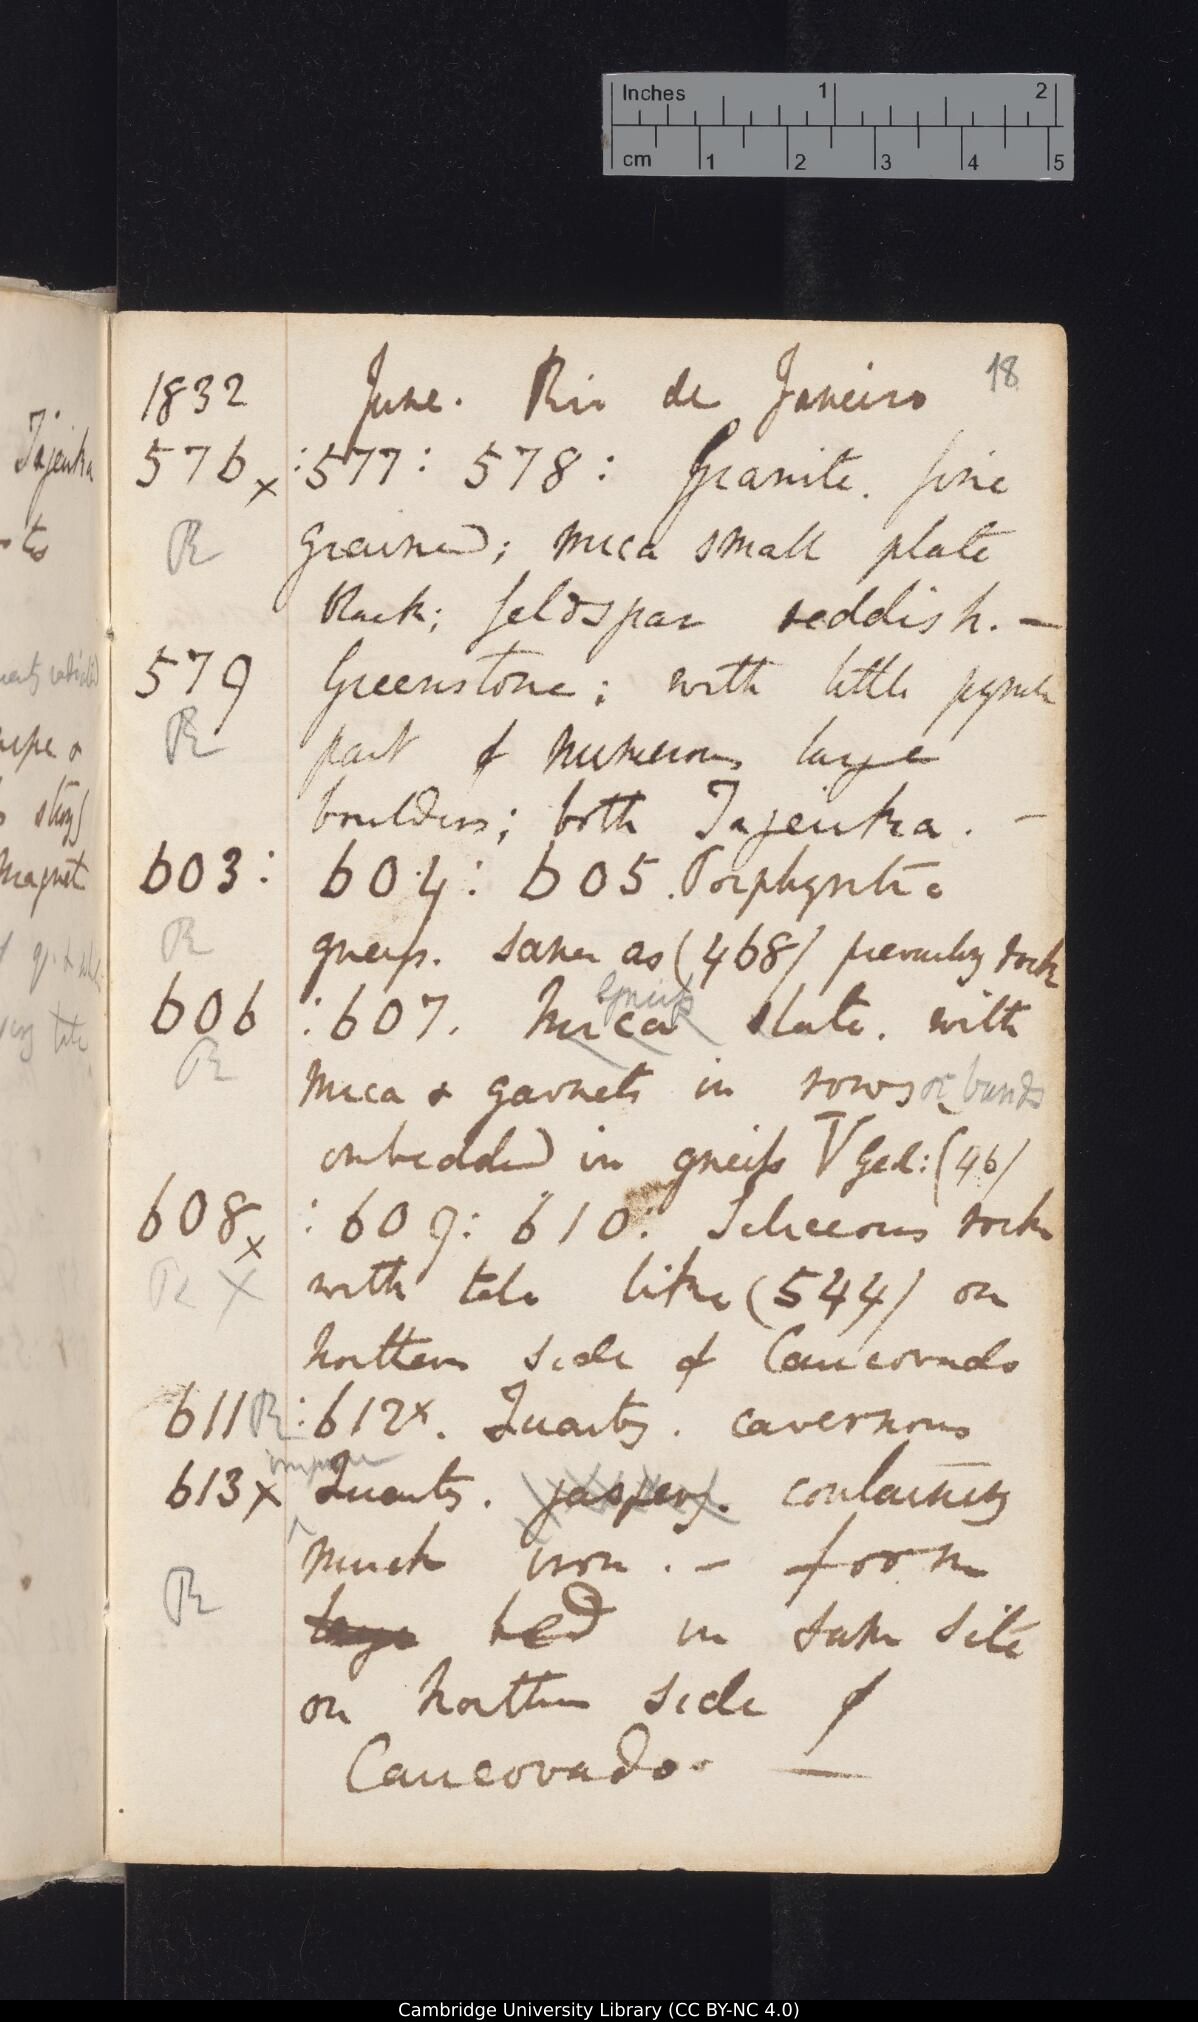 Inches 1 2
cm 1 2 3 4 5
18
1832 June. Rio de Janeiro
576x :577: 578: Granite. fine
R grained; mica small plate
black; feldspar reddish. —
579 Greenstone; with little
R part of numerous large
boulders; both Tajeuka. —
603: 604: 605. Porphyritic
R gneiss. same as (468) prevailing rock
gneiss
606 :607. Mica slate. with
R mica & garnets in rows or bands
embedded in gneiss V Geol: (46)
608x : 609: 610: Siliceous rock
R X with talc like (544) on
Northern side of Caucovado
611 R :612x. Quartz. cavernous
impure
613x Quartz. jaspery. containing
much iron. — form
R large bed in same site
on Northern side of
Caucovado. —
Tajeuka
magnet
Cambridge University Library (CC BY-NC 4.0)